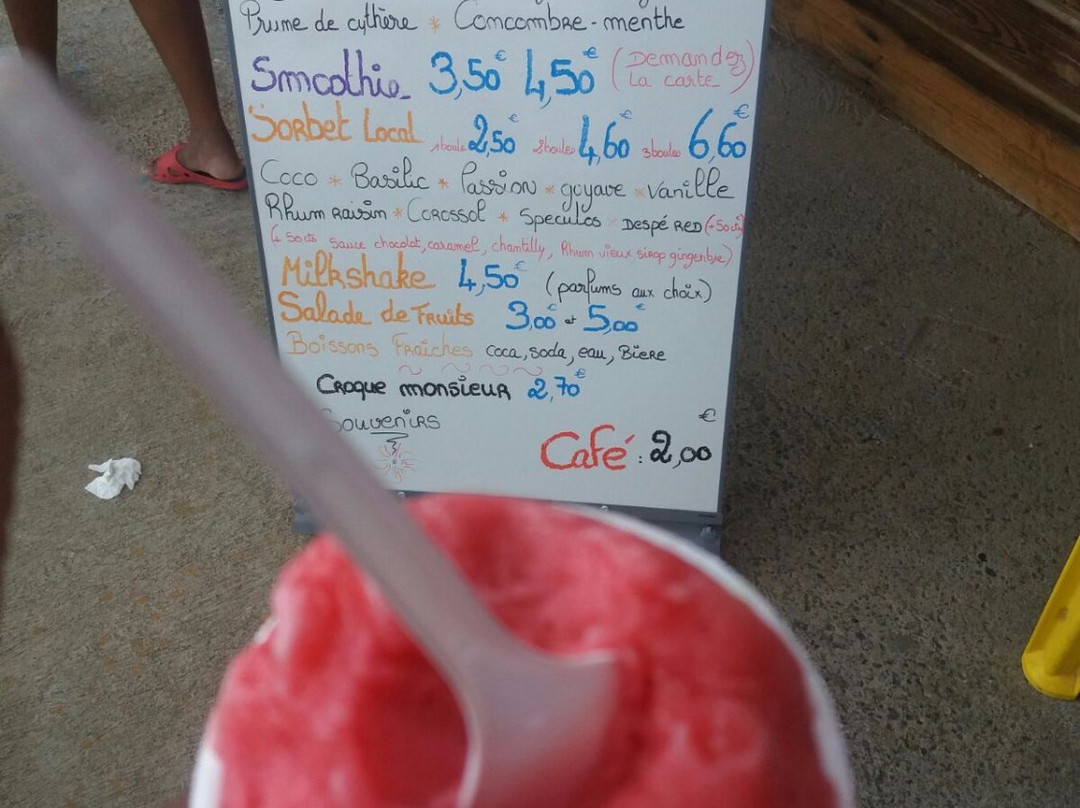 Prune de cythère * Concombre - menthe
Smoothie 3,50€ 4,50€ (Demandez la carte)
Sorbet Local 1boule 2,50€ 2boules 4,60€ 3boules 6,60€
Coco * Basilic * Passion * goyave * vanille
Rhum raisin * Corossol * Speculos DESPÉ RED (+50cts)
(+ 50cts sauce chocolat, caramel, chantilly, Rhum vieux sirop gingembre)
Milkshake 4,50€ (parfums aux choix)
Salade de Fruits 3,00€ et 5,00€
Boissons Fraîches coca, soda, eau, Bière
Croque monsieur 2,70€
Souvenirs
Café : 2,00€